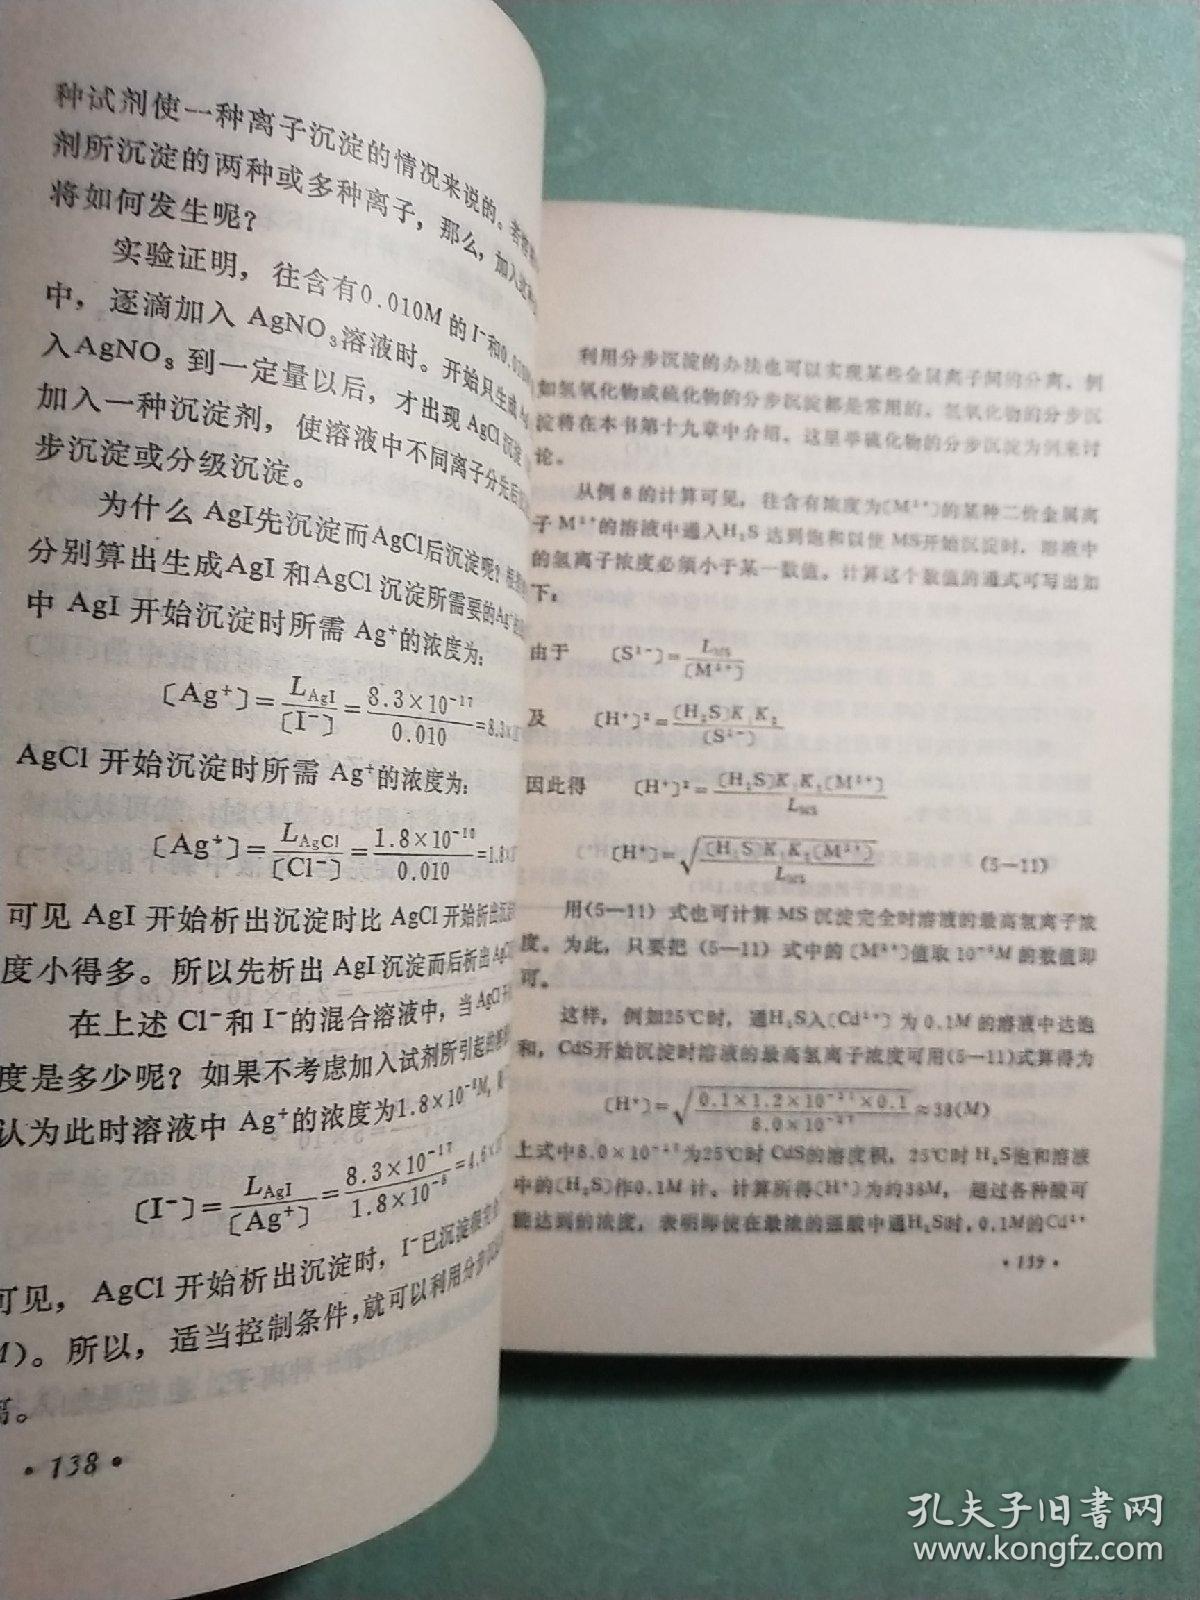 种试剂使一种离子沉淀的情况来说的。若溶
剂所沉淀的两种或多种离子，那么，加入
将如何发生呢？
实验证明，往含有0.010M 的 I⁻和0.010M
中，逐滴加入 AgNO₃溶液时。开始只生成 Ag
入AgNO₃ 到一定量以后，才出现 AgCl 沉淀
加入一种沉淀剂，使溶液中不同离子分先后
步沉淀或分级沉淀。
为什么 AgI先沉淀而AgCl后沉淀呢？根据
分别算出生成AgI 和AgCl 沉淀所需要的Ag⁺
中 AgI 开始沉淀时所需 Ag⁺的浓度为：
〔Ag⁺〕= L_AgI/〔I⁻〕 = 8.3×10⁻¹⁷/0.010 =8.3×1
AgCl 开始沉淀时所需 Ag⁺的浓度为：
〔Ag⁺〕= L_AgCl/〔Cl⁻〕 = 1.8×10⁻¹⁰/0.010 =1.8×1
可见 AgI 开始析出沉淀时比 AgCl 开始析出沉
度小得多。所以先析出 AgI 沉淀而后析出 AgCl
在上述 Cl⁻和 I⁻的混合溶液中，当 AgCl 开
度是多少呢？如果不考虑加入试剂所引起的
认为此时溶液中 Ag⁺的浓度为1.8×10⁻⁸M,
〔I⁻〕= L_AgI/〔Ag⁺〕 = 8.3×10⁻¹⁷/1.8×10⁻⁸ =4.6×1
可见，AgCl 开始析出沉淀时，I⁻已沉淀很完全
M)。所以，适当控制条件，就可以利用分步沉
离。
·138·
利用分步沉淀的办法也可以实现某些金属离子间的分离。例
如氢氧化物或硫化物的分步沉淀都是常用的。氢氧化物的分步沉
淀将在本书第十九章中介绍。这里举硫化物的分步沉淀为例来讨
论。
从例 8 的计算可见，往含有浓度为〔M²⁺〕的某种二价金属离
子 M²⁺的溶液中通入H₂S 达到饱和以使 MS开始沉淀时，溶液中
的氢离子浓度必须小于某一数值。计算这个数值的通式可写出如
下：
由于 〔S²⁻〕= L_MS/〔M²⁺〕
及 〔H⁺〕²= 〔H₂S〕K₁K₂/〔S²⁻〕
因此得 〔H⁺〕²= 〔H₂S〕K₁K₂〔M²⁺〕/L_MS
〔H⁺〕= √(〔H₂S〕K₁K₂〔M²⁺〕/L_MS) (5—11)
用(5—11) 式也可计算 MS 沉淀完全时溶液的最高氢离子浓
度。为此，只要把 (5—11) 式中的〔M²⁺〕值取 10⁻⁵M 的数值即
可。
这样，例如25℃时，通H₂S入〔Cd²⁺〕为 0.1M 的溶液中达饱
和，CdS开始沉淀时溶液的最高氢离子浓度可用(5—11)式算得为
〔H⁺〕= √(0.1×1.2×10⁻²¹×0.1/8.0×10⁻²⁷) ≈38(M)
上式中8.0×10⁻²⁷为25℃时 CdS的溶度积，25℃时 H₂S饱和溶液
中的〔H₂S〕作0.1M 计。计算所得〔H⁺〕为约38M，超过各种酸可
能达到的浓度，表明即使在最浓的强酸中通H₂S时，0.1M的Cd²⁺
·139·
孔夫子旧书网
www.kongfz.com